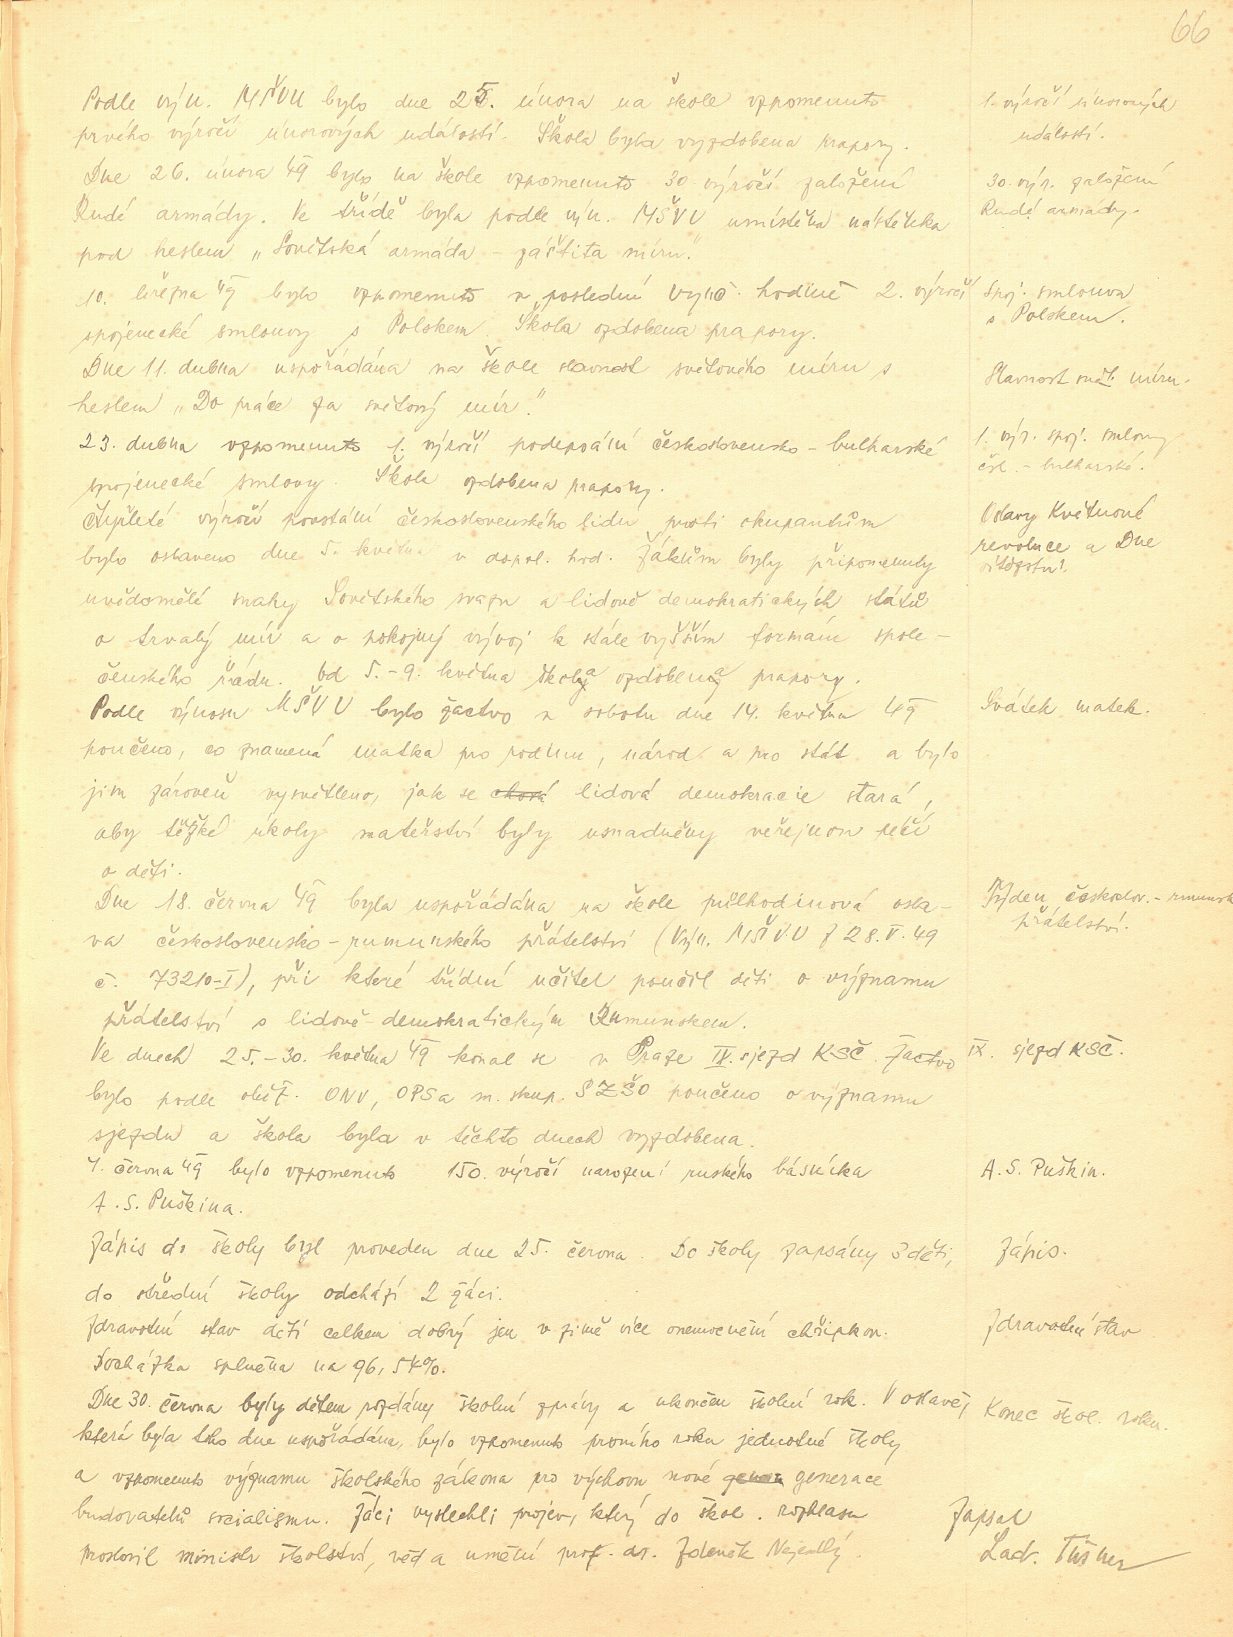 66
Podle výn. MŠVU bylo dne 25. února na škole vzpomenuto
1. výročí únorových
prvého výročí únorových událostí. Škola byla vyzdobena prapory.
událostí.
Dne 26. února 49 bylo na škole vzpomenuto 30 výročí založení
30. výr. založení
Rudé armády. Ve třídě byla podle výn. MŠVU umístěna nástěnka
Rudé armády.
pod heslem „Sovětská armáda – záštita míru."
10. března 49 bylo vzpomenuto v poslední vyuč. hodině 2. výročí
Spoj. smlouva
spojenecké smlouvy s Polskem. Škola ozdobena prapory.
s Polskem.
Dne 11. dubna uspořádána na škole slavnost světového míru s
Slavnost svět. míru.
heslem „Do práce za světový mír."
23. dubna vzpomenuto 1. výročí podepsání československo – bulharské
1. výr. spoj. smlouvy
spojenecké smlouvy. Škola ozdobena prapory.
čsl. – bulharské.
Čtyřleté výročí povstání československého lidu proti okupantům
Oslavy Květnové
bylo oslaveno dne 5. května v dopol. hod. Žákům byly připomenuty
revoluce a Dne
vítězství.
uvědomělé snahy Sovětského svazu a lidově demokratických států
o trvalý mír a o pokojný vývoj k stále vyšším formám spole-
čenského řádu. Od 5.–9. května škola ozdobena prapory.
Podle výnosu MŠVU bylo žactvo v sobotu dne 14. května 49
Svátek matek.
poučeno, co znamená matka pro rodinu, národ a pro stát a bylo
jim zároveň vysvětleno, jak se chová lidová demokracie stará,
aby těžké úkoly mateřství byly usnadněny veřejnou péčí
o děti.
Dne 18. června 49 byla uspořádána na škole půlhodinová osla-
Týden českoslov. – rumunsk
va československo – rumunského přátelství (Výn. MŠVU z 28.V.49
přátelství.
č. 73210-I), při které třídní učitel poučil děti o významu
přátelství s lidově-demokratickým Rumunskem.
Ve dnech 25.–30. května 49 konal se v Praze IX. sjezd KSČ. Žactvo
IX. sjezd KSČ.
bylo podle oběž. ONV, OPS a m. skup. SZŠO poučeno o významu
sjezdu a škola byla v těchto dnech vyzdobena.
4. června 49 bylo vzpomenuto 150. výročí narození ruského básníka
A. S. Puškin.
A. S. Puškina.
Zápis do školy byl proveden dne 25. června. Do školy zapsány 3 děti,
Zápis.
do střední školy odchází 2 žáci.
Zdravotní stav dětí celkem dobrý jen v zimě více onemocnění chřipkou.
Zdravotní stav
Docházka splněna na 96,54%.
Dne 30. června byly dětem rozdány školní zprávy a ukončen školní rok. V oslavě,
Konec škol. roku.
která byla toho dne uspořádána, bylo vzpomenuto prvního roku jednotné školy
a vzpomenuto významu školského zákona pro výchovu nové generace
budovatelů socialismu. Žáci vyslechli projev, který do škol. rozhlasu
Zapsal
proslovil ministr školství, věd a umění prof. dr. Zdeněk Nejedlý.
Lad.